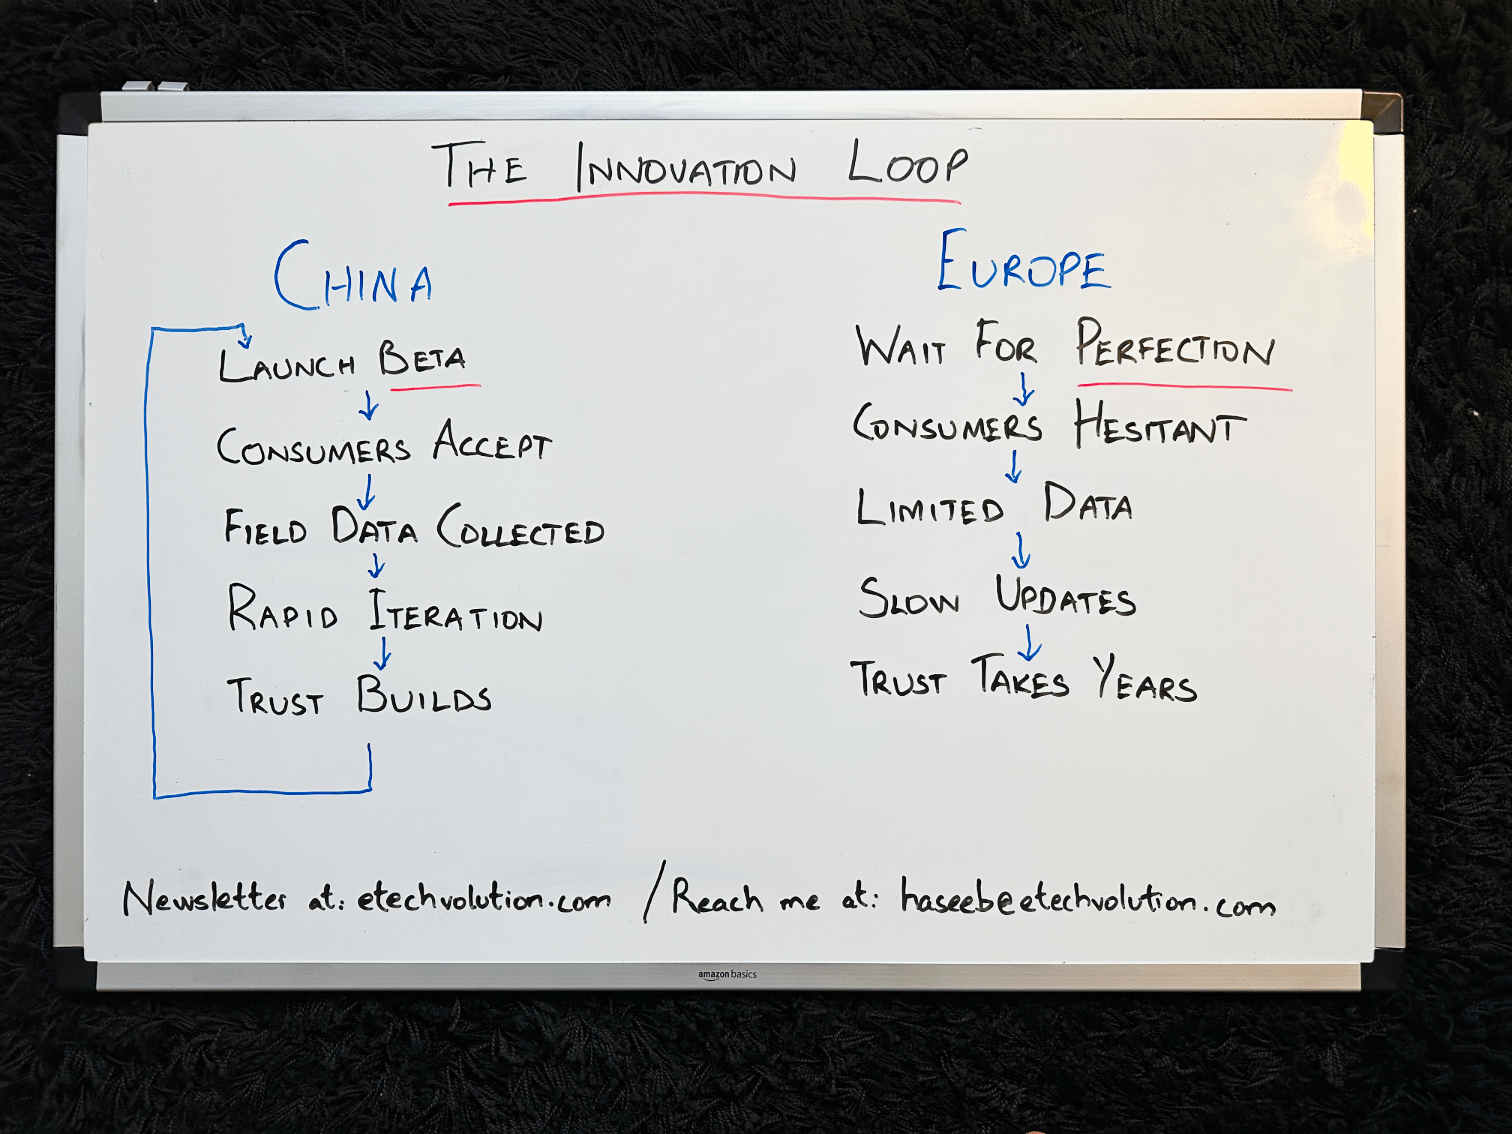 THE INNOVATION LOOP
CHINA
LAUNCH BETA
CONSUMERS ACCEPT
FIELD DATA COLLECTED
RAPID ITERATION
TRUST BUILDS
EUROPE
WAIT FOR PERFECTION
CONSUMERS HESITANT
LIMITED DATA
SLOW UPDATES
TRUST TAKES YEARS
Newsletter at: etechvolution.com / Reach me at: haseeb@etechvolution.com
amazon basics